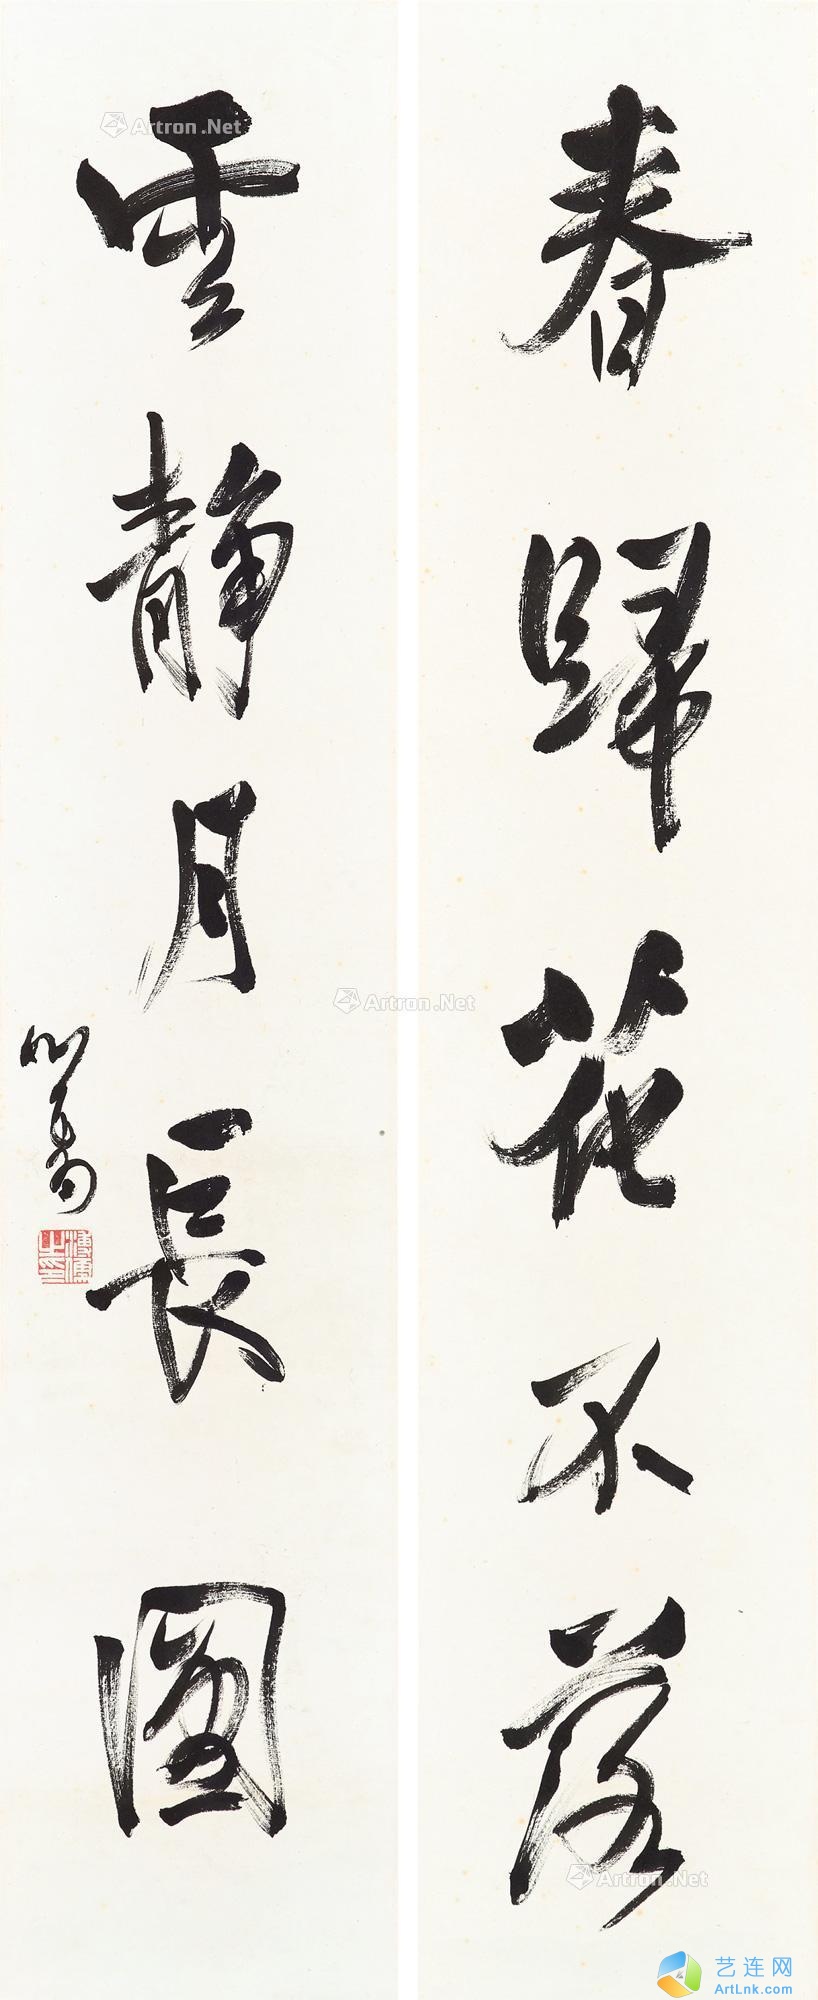 春歸花不落
雲靜月長圓
心畬
溥儒之印
Artron.Net
Artron.Net
Artron.Net
艺连网
ArtLnk.com